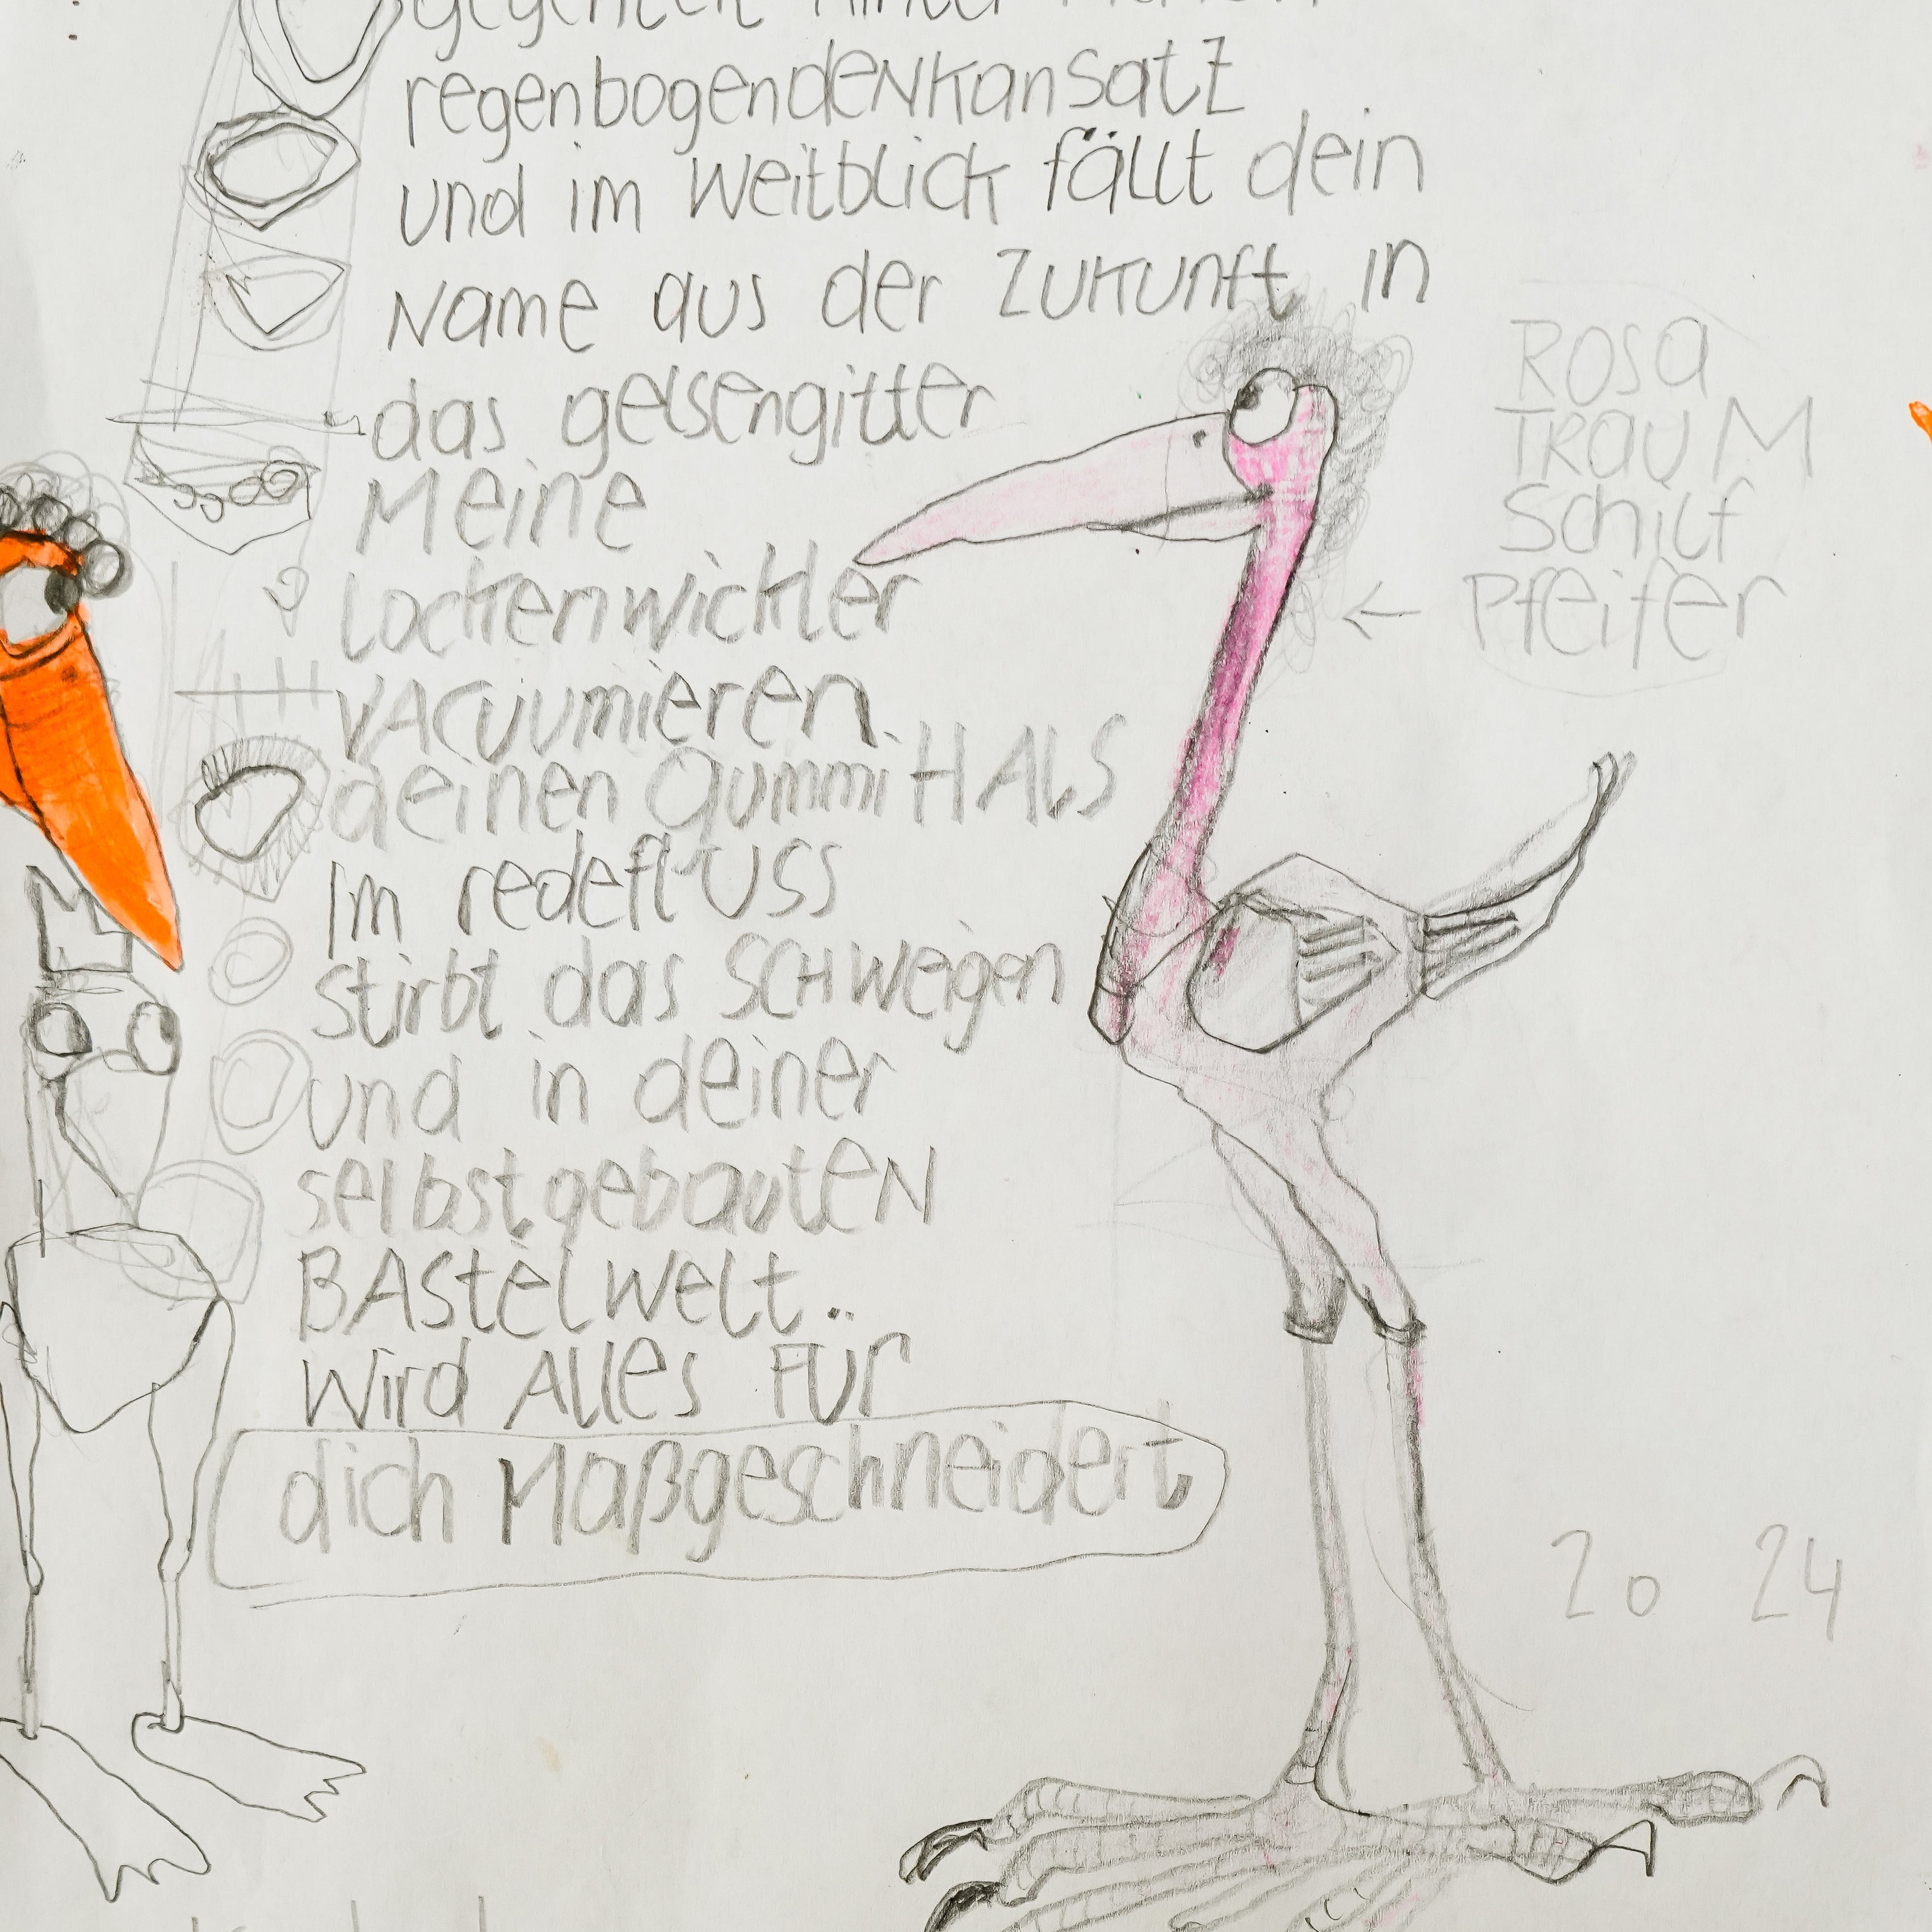 regenbogendenkansatz
und im Weitblick fällt dein
Name aus der Zukunft in
das gelsengitter
Meine
Lockenwickler
VACUUmieren
deinen GummiHALS
Im redefluss
stirbt das SCHweigen
und in deiner
selbstgebauteN
BAStelwelt..
Wird Alles Für
dich Maßgeschneidert
ROSA
TRAUM
Schilf
Pfeifer
20 24